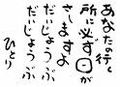 あなたの行く
所に必ず日が
さしますよ
だいじょうぶ
だいじょうぶ
ひとり